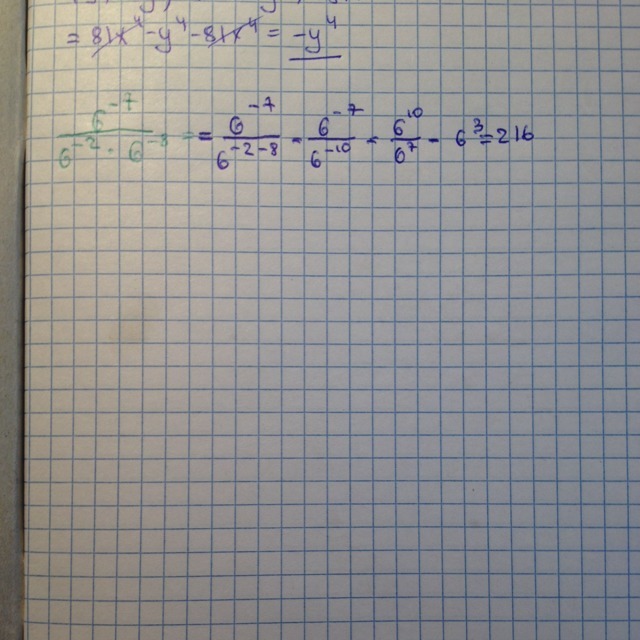 = 81x⁴ - y⁴ - 81x⁴ = -y⁴
6⁻⁷ / 6⁻² · 6⁻⁸ = = 6⁻⁷ / 6⁻²⁻⁸ = 6⁻⁷ / 6⁻¹⁰ = 6¹⁰ / 6⁷ = 6³ = 216